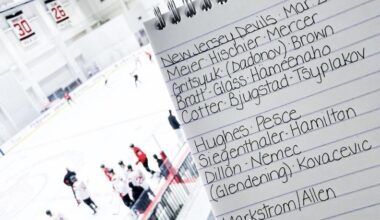 30
26
New Jersey Devils Mar 2
Meier·Hischier·Mercer
Gritsyuk·(Dadonov)·Brown
Bratt·Glass·Hameenaho
Cotter·Bjugstad·Tsyplakov
Hughes·Pesce
Siegenthaler·Hamilton
Dillon·Nemec
(Glendening)·Kovacevic
Markstrom/Allen